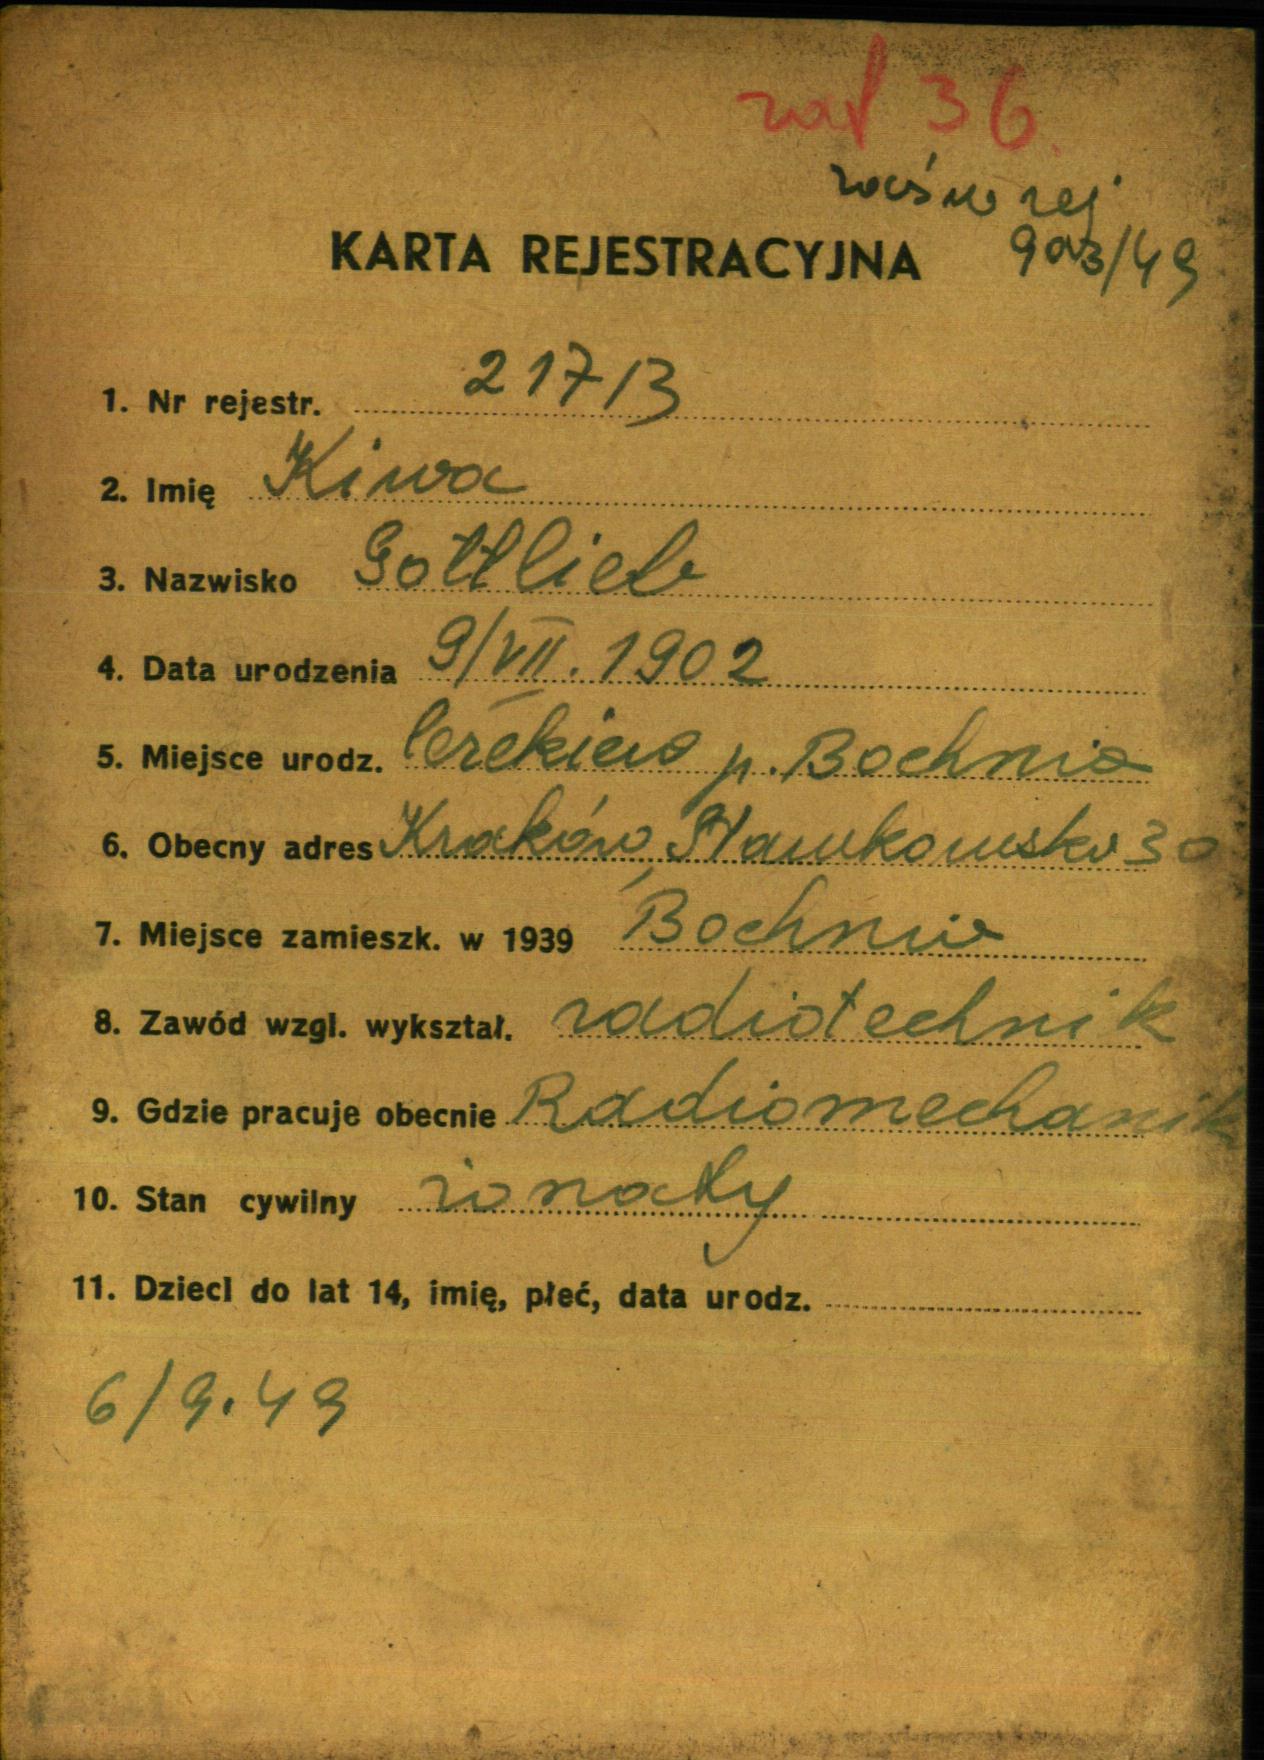 zał 36.
zaśw rej
903/49
KARTA REJESTRACYJNA
1. Nr rejestr. 217/B
2. Imię Kiwa
3. Nazwisko Gottlieb
4. Data urodzenia 9/VII. 1902
5. Miejsce urodz. Cerekiew p. Bochnia
6. Obecny adres Kraków, Sławkowska 30
7. Miejsce zamieszk. w 1939 Bochnia
8. Zawód wzgl. wykształ. radiotechnik
9. Gdzie pracuje obecnie Radiomechanik
10. Stan cywilny żonaty
11. Dzieci do lat 14, imię, płeć, data urodz.
6/9.49